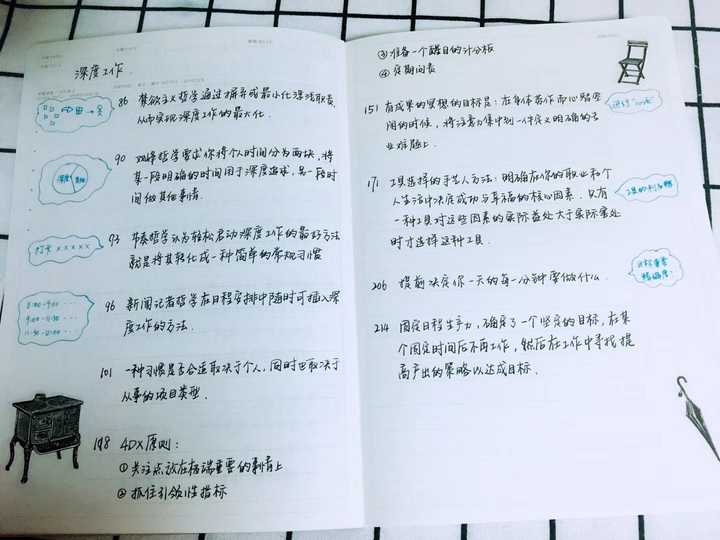 深度工作.
86 禁欲主义哲学通过摒弃或最小化浮浅职责,
从而实现深度工作的最大化.
90 双峰哲学要求你将个人时间分为两块,将
某一段明确的时间用于深度追求,另一段时
间做其他事情.
深度
93 节奏哲学认为轻松启动深度工作的最好方法
就是将其转化成一种简单的常规习惯
打卡 X X X X X
96 新闻记者哲学在日程安排中随时可插入深
度工作的方法.
8:00-9:00 ...
9:00-11:30 ...
11:30-12:00 ...
101 一种习惯是否合适取决于个人,同时也取决于
从事的项目类型.
118 4DX原则:
①关注点放在极端重要的事情上
②抓住引领性指标
③准备一个醒目的计分板
④定期问责
151 有成果的冥想的目标是:在身体劳作而心智空
闲的时候,将注意力集中到一件定义明确的专
业难题上.
171 工具选择的手艺人方法:明确在你的职业和个
人生活中决定成功与幸福的核心因素.只有
一种工具对这些因素的实际益处大于实际害处
时才选择这种工具.
工具的利与弊
206 提前决定你一天的每一分钟要做什么.
214 固定日程生产力,确定了一个坚定的目标,在某
个固定时间后不再工作,然后在工作中寻找提
高产出的策略以达成目标.